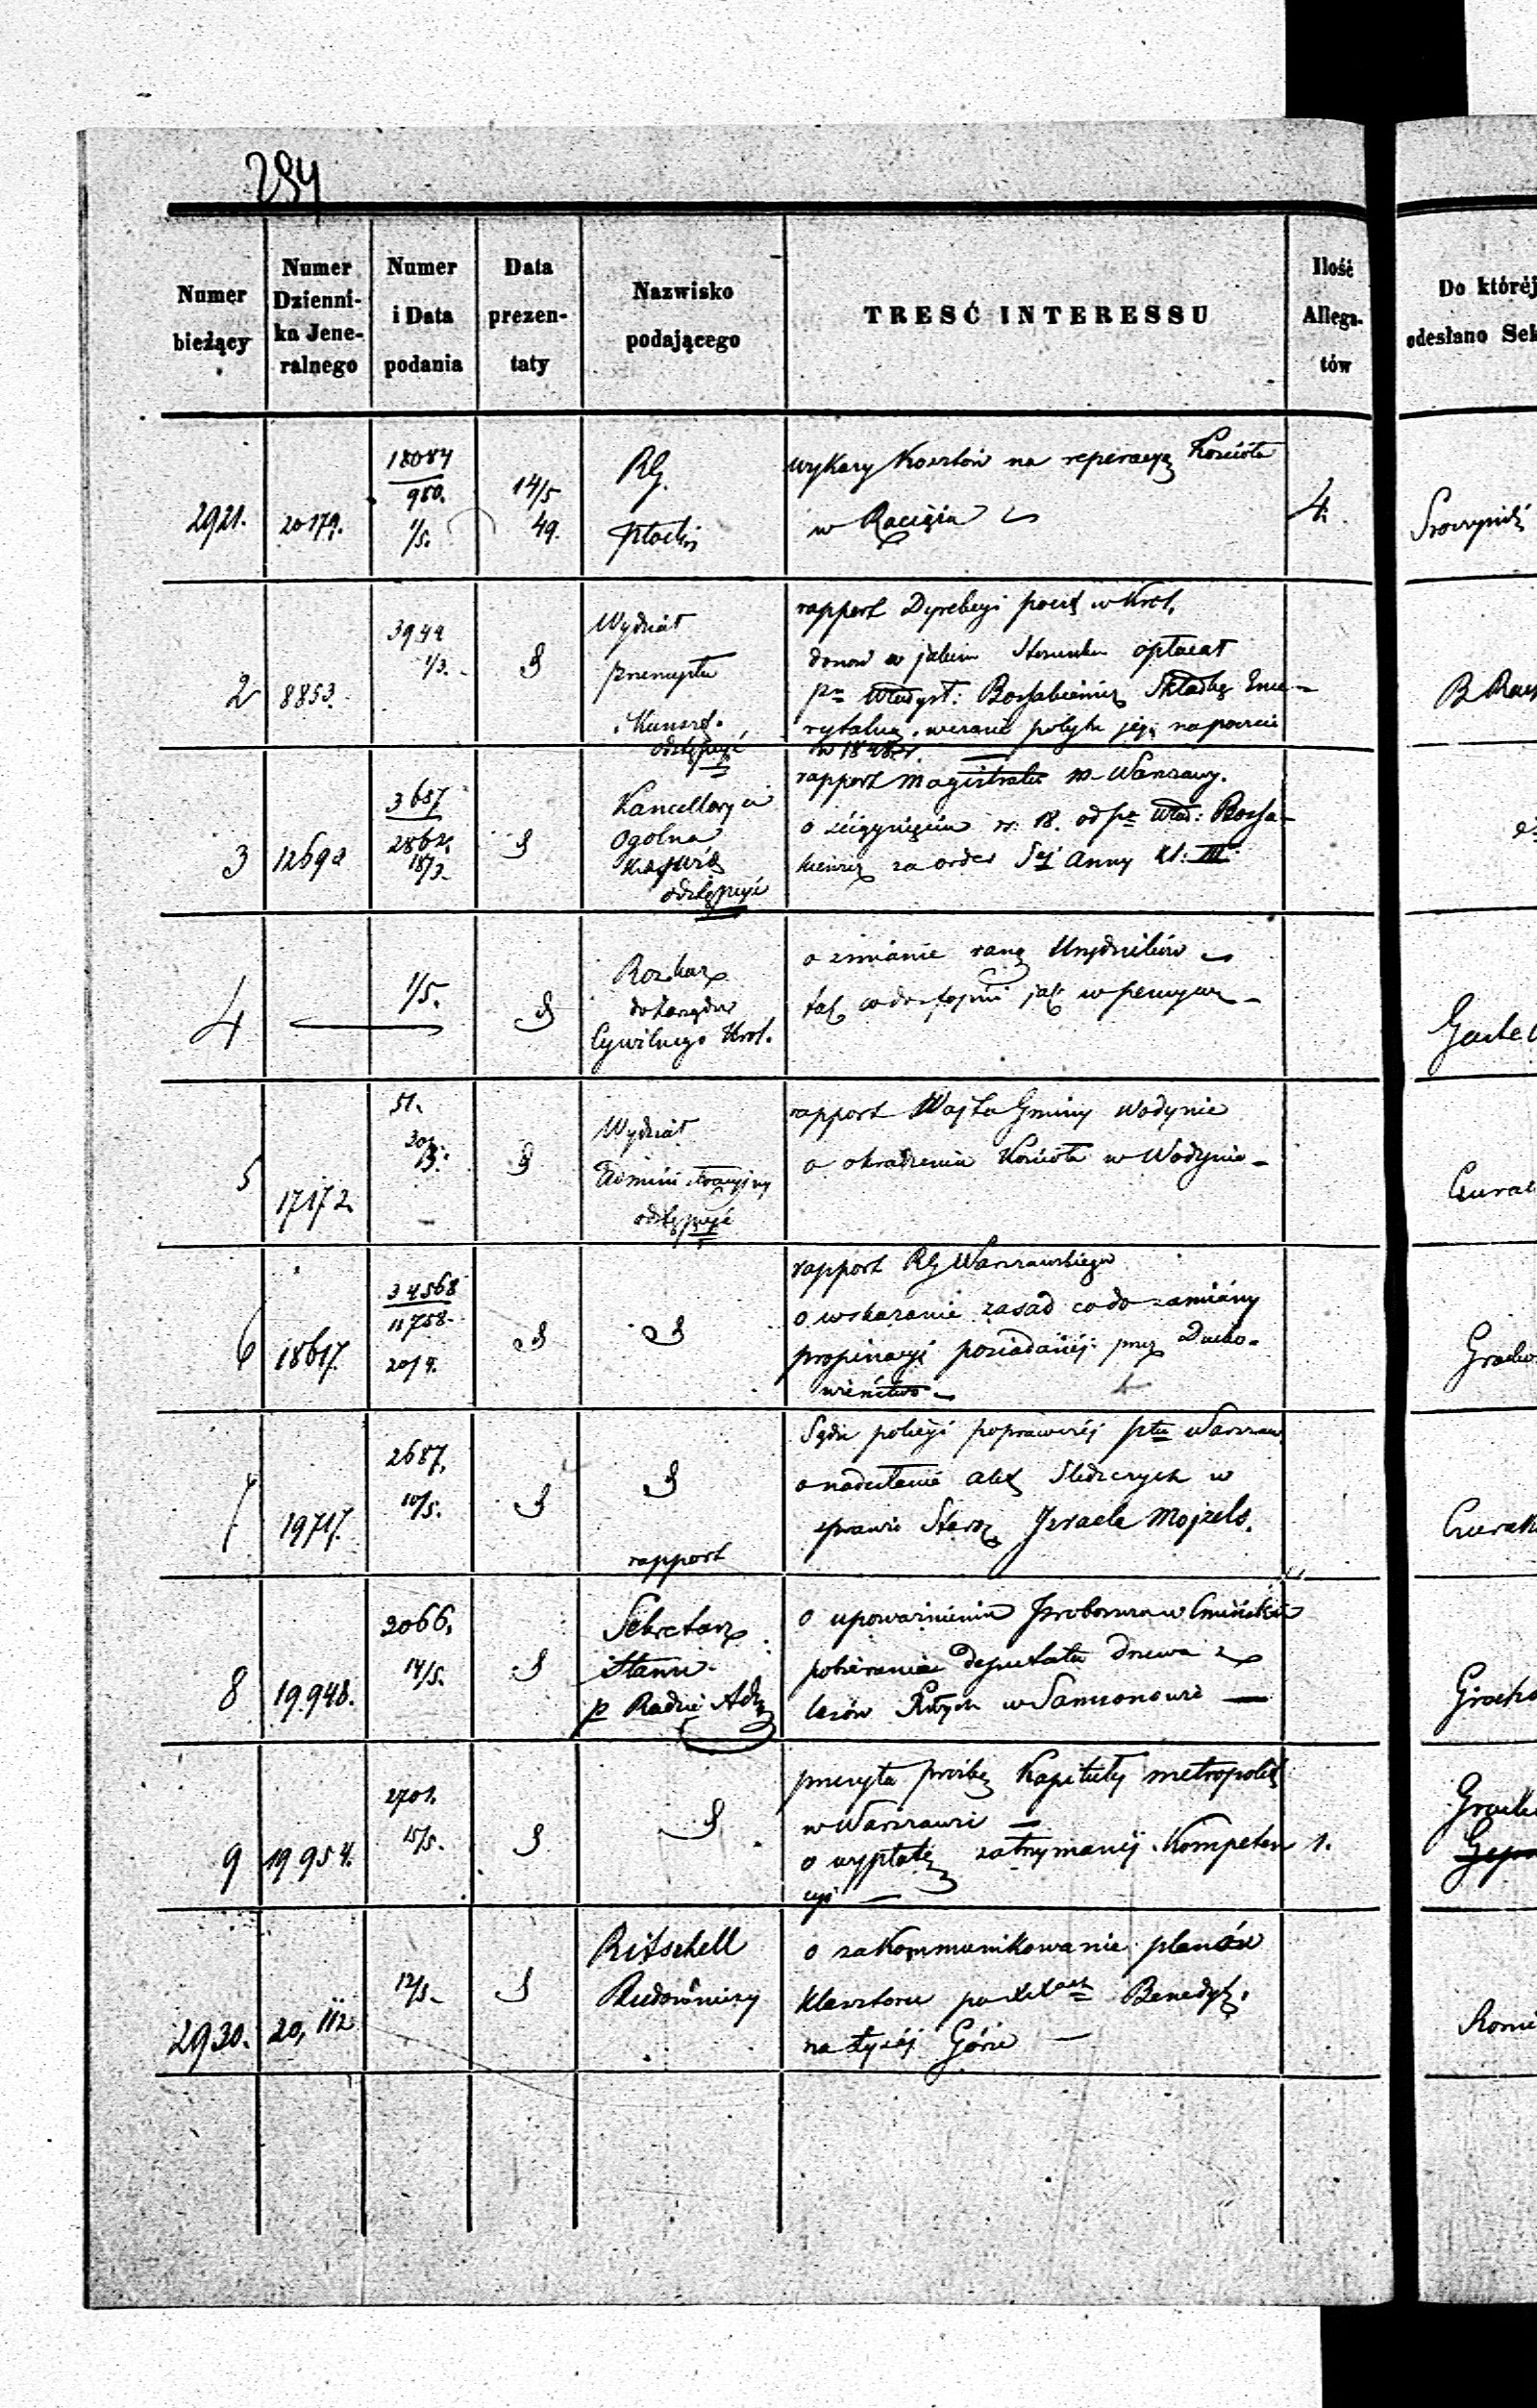 294
Numer bieżący
Numer Dzienni-ka Jene-ralnego
Numer i Data podania
Data prezen-taty
Nazwisko podającego
TRESĆ INTERESSU
Ilość Allega-tów
Do któréj
odesłano Sek
2921.
20179.
18084
980.
1/5.
14/5
49.
RG.
Płocki
wykazy kosztów na reperacyą Kościoła
w Raciążu
4.
2
8853.
3944
1/3.
Wydział
przemysłu
i Kunszt.
odstępuje
rapport Dyrekcyi poczt w Król.
donosi w jakim stosunku opłacał
pn Władysł: Bossakiewicz Składkę Eme-
rytalną, w czasie pobytu jego na poczcie
w 1848 r.
3
12692
3687
2862.
18/3.
Kancellarya
Ogolna
odstępuje
rapport Magistratu m. Warszawy.
o ściągnięciu rs. 18. od pa Wład: Bossa-
kiewicz za order Stej Anny kl: III.
4
1/5.
Rozkaz
do Zarządu
Cywilnego Krol.
o zmianie rang Urzędników
tak co do stopni jak w pensyi
5
17172.
51.
Wydział
Administracyjny
odstępuje
rapport Wojta Gminy Wodynie
o okradzeniu Kościoła w Wodyniu
6
18617.
34568
11758.
20/4.
rapport RG Warszawskiego
o wskazanie zasad co do zamiany
propinacyi posiadanéj przez Ducho-
wieństwo
7
19717.
2687.
10/5.
rapport
Sądu policyi poprawczéj ptu Warszaw.
o nadesłanie akt śledczych w
sprawie Starz. Izraela Mojzels.
8
19.948.
2066.
14/5.
Sekretarz
Stanu
p Radzie Adm
o upoważnieniu Proboszcza w Cmińsku
pobierania deputatu drzewa z
lasów Rzłych w Samsonowie
9
19954.
2701.
15/5.
przesyła prośbę Kapituły metropolit
w Warszawie
o wypłatę zatrzymanéj Kompeten
cyi
1.
2930.
20,112
12/5.
Ritschell
Budowniczy
o zakommunikowanie planów
klasztoru po XXach Benedyk.
na Łyséj Górze